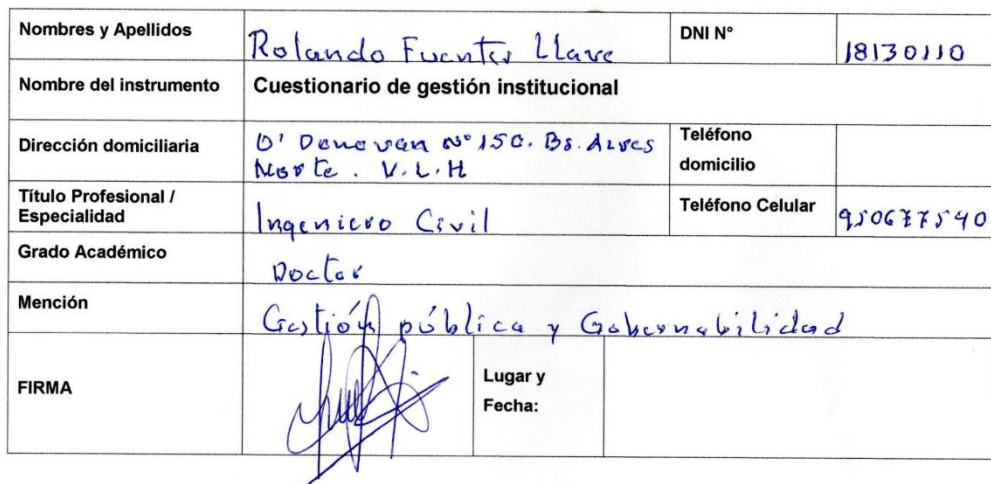 Nombres y Apellidos Rolando Fuentes Llave DNI N° 18130110
Nombre del instrumento Cuestionario de gestión institucional
Dirección domiciliaria O' Donovan N° 150. Bs. Aires Teléfono
Norte. V.L.H domicilio
Título Profesional / Ingeniero Civil Teléfono Celular 950677540
Especialidad
Grado Académico Doctor
Mención Gestión pública y Gobernabilidad
FIRMA Lugar y
Fecha: